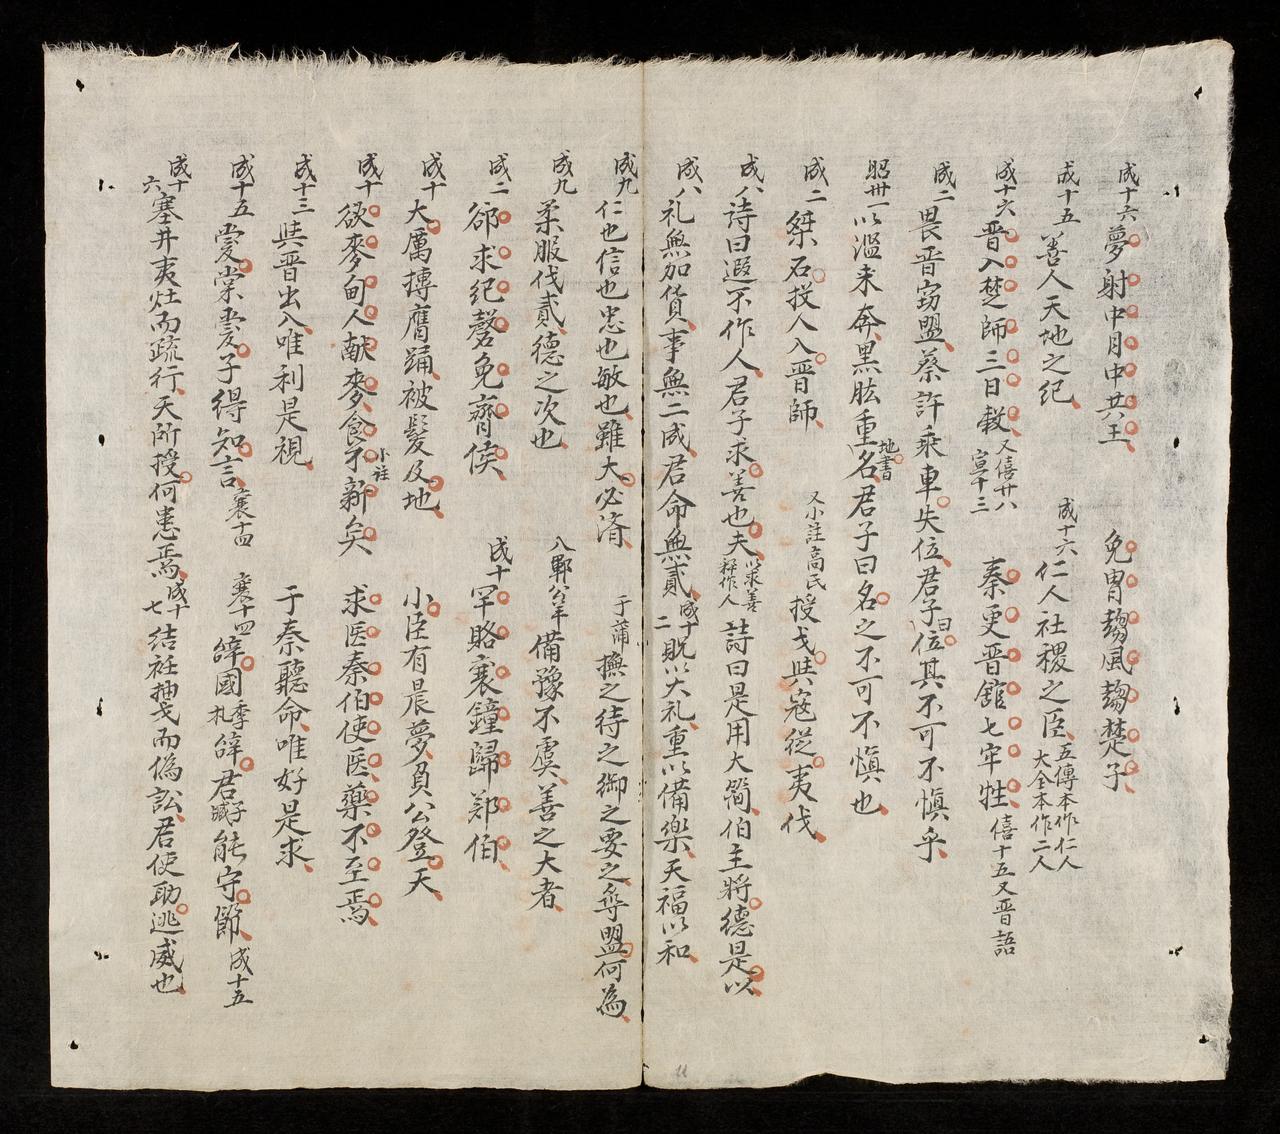 成十六夢射中月中共王　免冑趨風趨楚子
成十五善人天地之紀　成十六仁人社稷之臣五傳本作仁人大全本作二人
成十六晋入楚師三日穀又僖廿八宣十三　秦更晋舘七牢牲僖十五又晋語
成二畏晋窃盟蔡許乘車失位君子曰位其不可不慎乎
昭卅一以濫来奔黒肱重地書名君子曰名之不可不慎也
成二桀石投人入晋師　又小註高氏授戈與寇從夷伐
成八詩曰遐不作人君子求善也夫以求善釋作人詩曰是用大簡伯主將德是以
成八礼無加貨事無二成君命無貳成十二貺以大礼重以備樂天福以和
成九仁也信也忠也敏也雖大必済　于蒲撫之待之御之要之尋盟何為
成九柔服伐貳德之次也　八鄆公羊備豫不虞善之大者
成二郤求紀磬免齊侯　成十罕賂襄鐘歸郑伯
成十大厲搏膺踊被髮及地　小臣有晨夢負公登天
成十欲麥甸人献麥食不新矣小註　求医秦伯使医藥不至焉
成十三與晋出入唯利是視　于秦聽命唯好是求
成十五爱棠爱子得知言襄十四　襄十四辝國季札辝君子臧能守節成十五
成十六塞井夷灶而疏行天所授何患焉成十七結衽抽戈而偽訟君使助逃威也
11